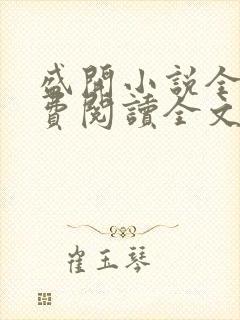 盛開小說全
費閱讀全文
崔玉琴